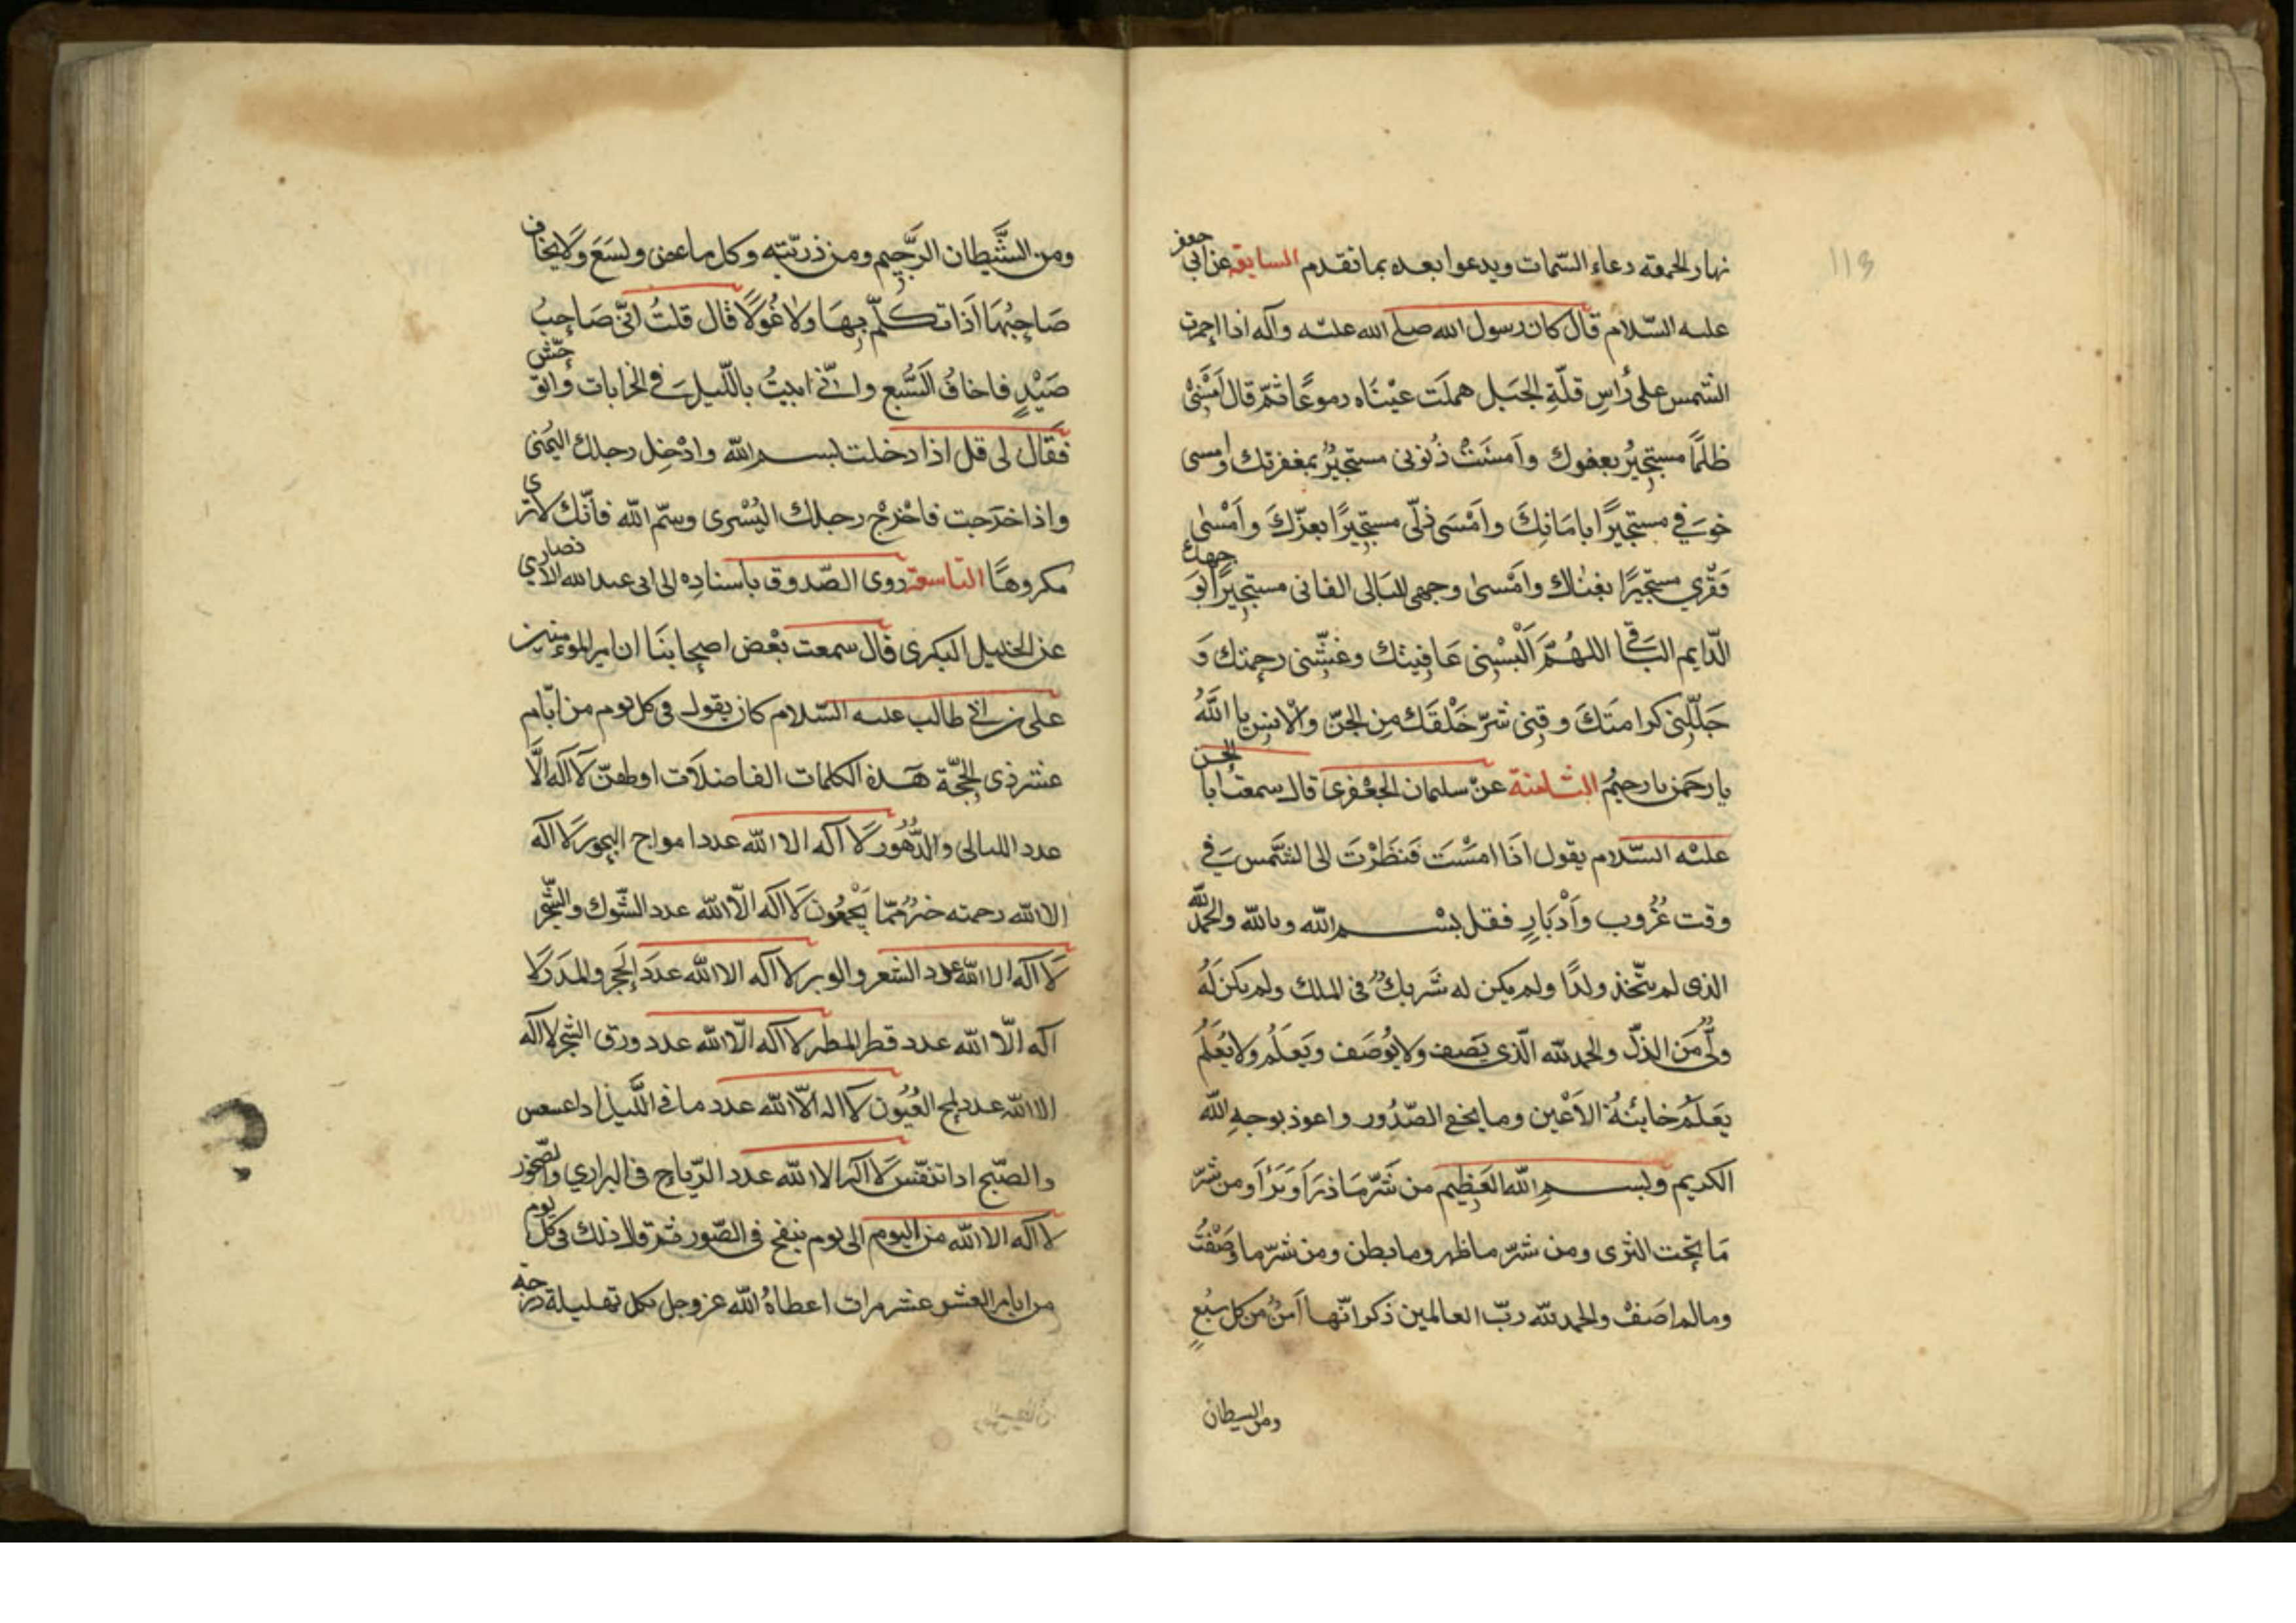 نهار الجمعة دعاء السّمات ويدعوا بعده بما تقدم السابعة عن ابى جعفر
عليه السّلام قال كان رسول الله صلى الله عليه وآله اذا احمرت
الشمس على رأس قلّة الجبل هملت عيناه دموعًا ثمّ قال امسى
ظلمى مستجيرٌ بعفوك وامست ذُنوبى مستجيرٌ بمغفرتك وامسى
خوفي مستجيرًا بامانك وامسى ذلّى مستجيرًا بعزّك وامسى
فقري مستجيرًا بغناك وامسى وجهى البالى الفانى مستجيرًا بوجهك
الدّايم الباقى اللهُمّ البسنى عافيتك وغشّنى رحمتك و
جلّلنى كرامتك وقنى شرّ خلقك من الجنّ والانس يا اللهُ
يا رحمن يا رحيمُ الثامنة عن سليمان الجعفرى قال سمعت ابا الحسن
عليه السّلام يقول اذا امسيت فنظرت الى الشّمس في
وقت غُروب وادبار فقل بسم الله وبالله والحمد لله
الذى لم يتّخذ ولدًا ولم يكن له شريكٌ فى الملك ولم يكن له
ولىٌّ من الذلّ والحمد لله الّذى يصف ولا يُوصف ويعلم ولا يُعلم
يعلم خائنة الاعين وما يخفي الصّدُور واعوذ بوجه الله
الكريم وبسم الله العظيم من شرّ ما ذرأ وبرأ ومن شرّ
ما تحت الثرى ومن شرّ ما ظهر وما بطن ومن شرّ ما وصفتُ
وما لم اصف والحمد لله ربّ العالمين ذكر انّها امنٌ من كل سبُعٍ
ومن الشيطان
113
ومن الشّيطان الرّجيم ومن ذريّته وكل ما عض ولسع ولا يخاف
صاحبُها اذا تكلّم بها ولا غُولًا قال قلتُ انّى صاحبُ
صيدٍ فاخافُ السّبع وانّي ابيتُ باللّيل في الخرابات واتوحّش
فقال لى قل اذا دخلت بسم الله وادخل رجلك اليُمنى
واذا خرجت فاخرج رجلك اليُسرى وسمّ الله فانّك لا ترى
مكروهًا التاسعة روى الصّدوق باسناده الى ابى عبد الله الانصاري
عن الخليل البكرى قال سمعت بعض اصحابنا ان امير المؤمنين
على بن ابي طالب عليه السّلام كان يقول فى كل يوم من ايّام
عشر ذى الحجّة هذه الكلمات الفاضلات اولهنّ لا اله الّا
عدد الليالى والدّهُور لا اله الا الله عدد امواج البحور لا اله
الا الله رحمته خيرٌ ممّا يجمعُون لا اله الّا الله عدد الشّوك والشّجر
لا اله الا الله عدد الشعر والوبر لا اله الا الله عدد الحجر والمدر لا
اله الّا الله عدد قطر المطر لا اله الّا الله عدد ورق الشجر لا اله
الا الله عدد لمح العُيُون لا اله الّا الله عدد ما فى اللّيل اذا عسعس
والصّبح اذا تنفّس لا اله الا الله عدد الرّياح فى البراري والصّخور
لا اله الا الله من اليوم الى يوم ينفخ فى الصّور من قال ذلك فى كل يوم
من ايام العشر عشر مرات اعطاهُ الله عز وجل بكل تهليلة درجة